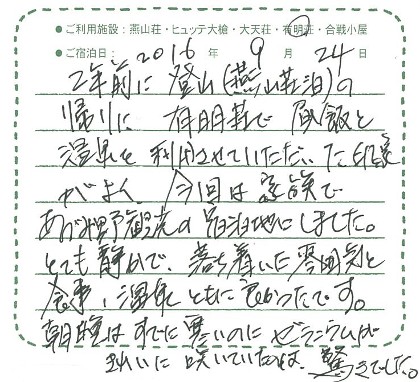 ●ご利用施設：燕山荘・ヒュッテ大槍・大天荘・有明荘・合戦小屋
●ご宿泊日： 2016 年 9 月 24 日
2年前に登山(燕山荘泊)の
帰りに 有明荘で 昼飯と
温泉を利用させていただいた印象
がよく、今回は家族で
あづみ野観光の宿泊地にしました。
とても静かで、落ち着いた雰囲気と
食事、温泉ともに良かったです。
朝晩はすでに寒いのにゼラニウムが
きれいに咲いていたのは、驚きでした。